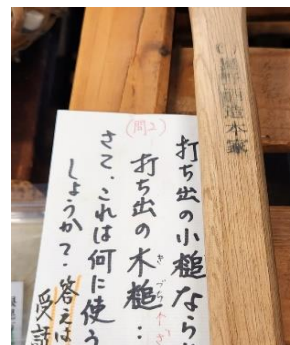 (問2)
打ち出の小槌なら
打ち出の木槌…
きづち
さて、これは何に使う
しょうか?答えは
受話
造本家